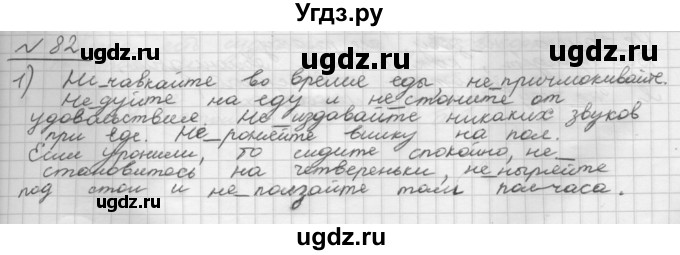 Угдз.ру
№ 82
1) Не чавкайте во время еды не причмокивайте.
Не дуйте на еду и не стоните от
удовольствие. Не издавайте никаких звуков
при еде. Не роняйте вилку на пол.
Если уронили, то сидите спокойно, не
становитось на четвереньки, не ныряйте
под стол и не ползайте там полчаса.
ugdz.ru ugdz.ru ugdz.ru
ugdz.ru ugdz.ru
ugdz.ru ugdz.ru ugdz.ru
ugdz.ru